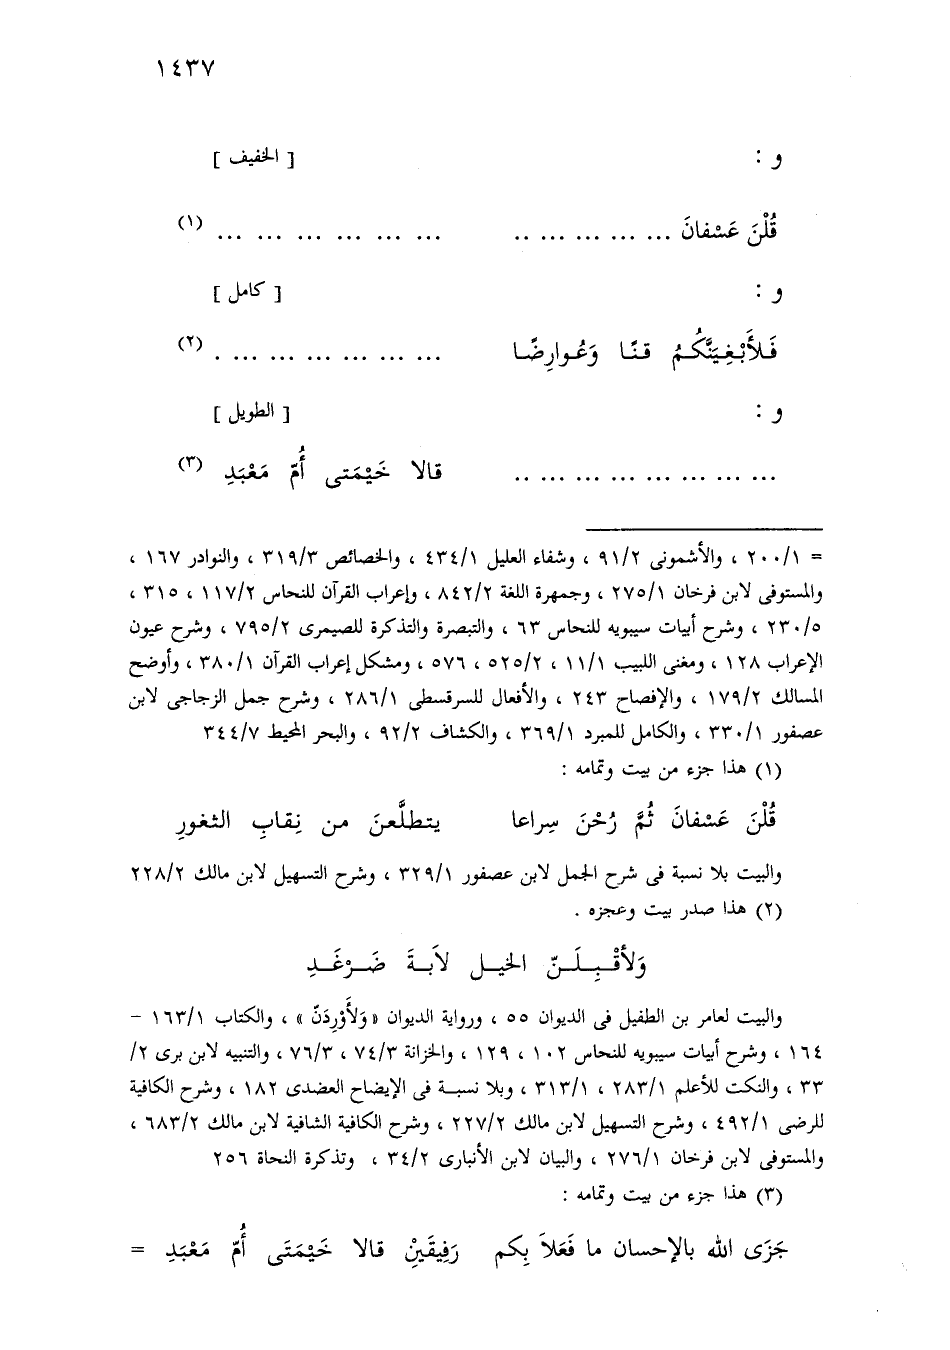 ١٤٣٧
و : [ الخفيف ]
قُلْنَ عَسْفانَ ... ... ... ... .. ... ... ... ... ... ... (١)
و : [ كامل ]
فَـلأَبْغِيَنَّكُـمُ قـنًـا وَعُـوارِضًـا ... ... ... ... ... ... . (٢)
و : [ الطويل ]
... ... ... ... ... ... ... .. قالا خَيْمَتى أُمّ مَعْبَدِ (٣)
= ٢٠٠/١ ، والأشمونى ٩١/٢ ، وشفاء العليل ٤٣٤/١ ، والخصائص ٣١٩/٣ ، والنوادر ١٦٧ ،
والمستوفى لابن فرخان ٢٧٥/١ ، وجمهرة اللغة ٨٤٢/٢ ، وإعراب القرآن للنحاس ١١٧/٢ ، ٣١٥ ،
٢٣٠/٥ ، وشرح أبيات سيبويه للنحاس ٦٣ ، والتبصرة والتذكرة للصيمرى ٧٩٥/٢ ، وشرح عيون
الإعراب ١٢٨ ، ومغنى اللبيب ١١/١ ، ٥٢٥/٢ ، ٥٧٦ ، ومشكل إعراب القرآن ٣٨٠/١ ، وأوضح
المسالك ١٧٩/٢ ، والإفصاح ٢٤٣ ، والأفعال للسرقسطى ٢٨٦/١ ، وشرح جمل الزجاجى لابن
عصفور ٣٣٠/١ ، والكامل للمبرد ٣٦٩/١ ، والكشاف ٩٢/٢ ، والبحر المحيط ٣٤٤/٧
(١) هذا جزء من بيت وتمامه :
قُلْنَ عَسْفانَ ثُمَّ رُحْنَ سِراعا يتطلَّعنَ من نِقابِ الثغورِ
والبيت بلا نسبة فى شرح الجمل لابن عصفور ٣٢٩/١ ، وشرح التسهيل لابن مالك ٢٢٨/٢
(٢) هذا صدر بيت وعجزه .
وَلأُقْـبِـلَـنّ الخيـل لاَبـةَ ضَـرْغَـدِ
والبيت لعامر بن الطفيل فى الديوان ٥٥ ، ورواية الديوان « وَلأَوْرِدَنّ » ، والكتاب ١٦٣/١ –
١٦٤ ، وشرح أبيات سيبويه للنحاس ١٠٢ ، ١٢٩ ، والخزانة ٧٤/٣ ، ٧٦/٣ ، والتنبيه لابن برى ٢/
٣٣ ، والنكت للأعلم ٢٨٣/١ ، ٣١٣/١ ، وبلا نسبـة فى الإيضاح العضدى ١٨٢ ، وشرح الكافية
للرضى ٤٩٢/١ ، وشرح التسهيل لابن مالك ٢٢٧/٢ ، وشرح الكافية الشافية لابن مالك ٦٨٣/٢ ،
والمستوفى لابن فرخان ٢٧٦/١ ، والبيان لابن الأنبارى ٣٤/٢ ، وتذكرة النحاة ٢٥٦
(٣) هذا جزء من بيت وتمامه :
جَزَى الله بالإحسان ما فَعَلاَ بِكم رَفِيقَيْنِ قالا خَيْمَتَى أُمّ مَعْبَدِ =